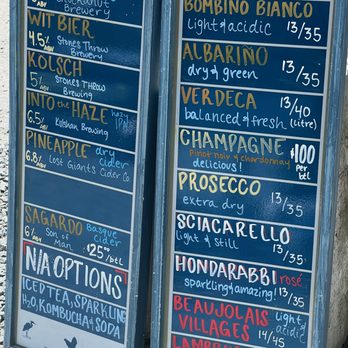 Brewery
WIT BIER
4.5% ABV
Stones Throw
Brewery
KOLSCH
5% ABV
Stones Throw
Brewing
INTO the HAZE hazy IPA
6.5% ABV Kulshan Brewing
PINEAPPLE dry cider
6.8% ABV Lost Giants Cider Co.
SAGARDO Basque cider
6% ABV Son of Man $25/btl
N/A OPTIONS
ICED TEA, SPARKLING
H2O, KOMBUCHA & SODA
BOMBINO BIANCO
light & acidic 13/35
ALBARIÑO
dry & green 13/35
VERDECA 13/40
balanced & fresh (litre)
CHAMPAGNE $100 per btl
pinot noir & chardonnay
delicious!
PROSECCO
extra dry 13/35
SCIACARELLO
light & still 13/35
HONDARRABI rosé
sparkling & amazing! 13/35
BEAUJOLAIS light & acidic
VILLAGES 14/45